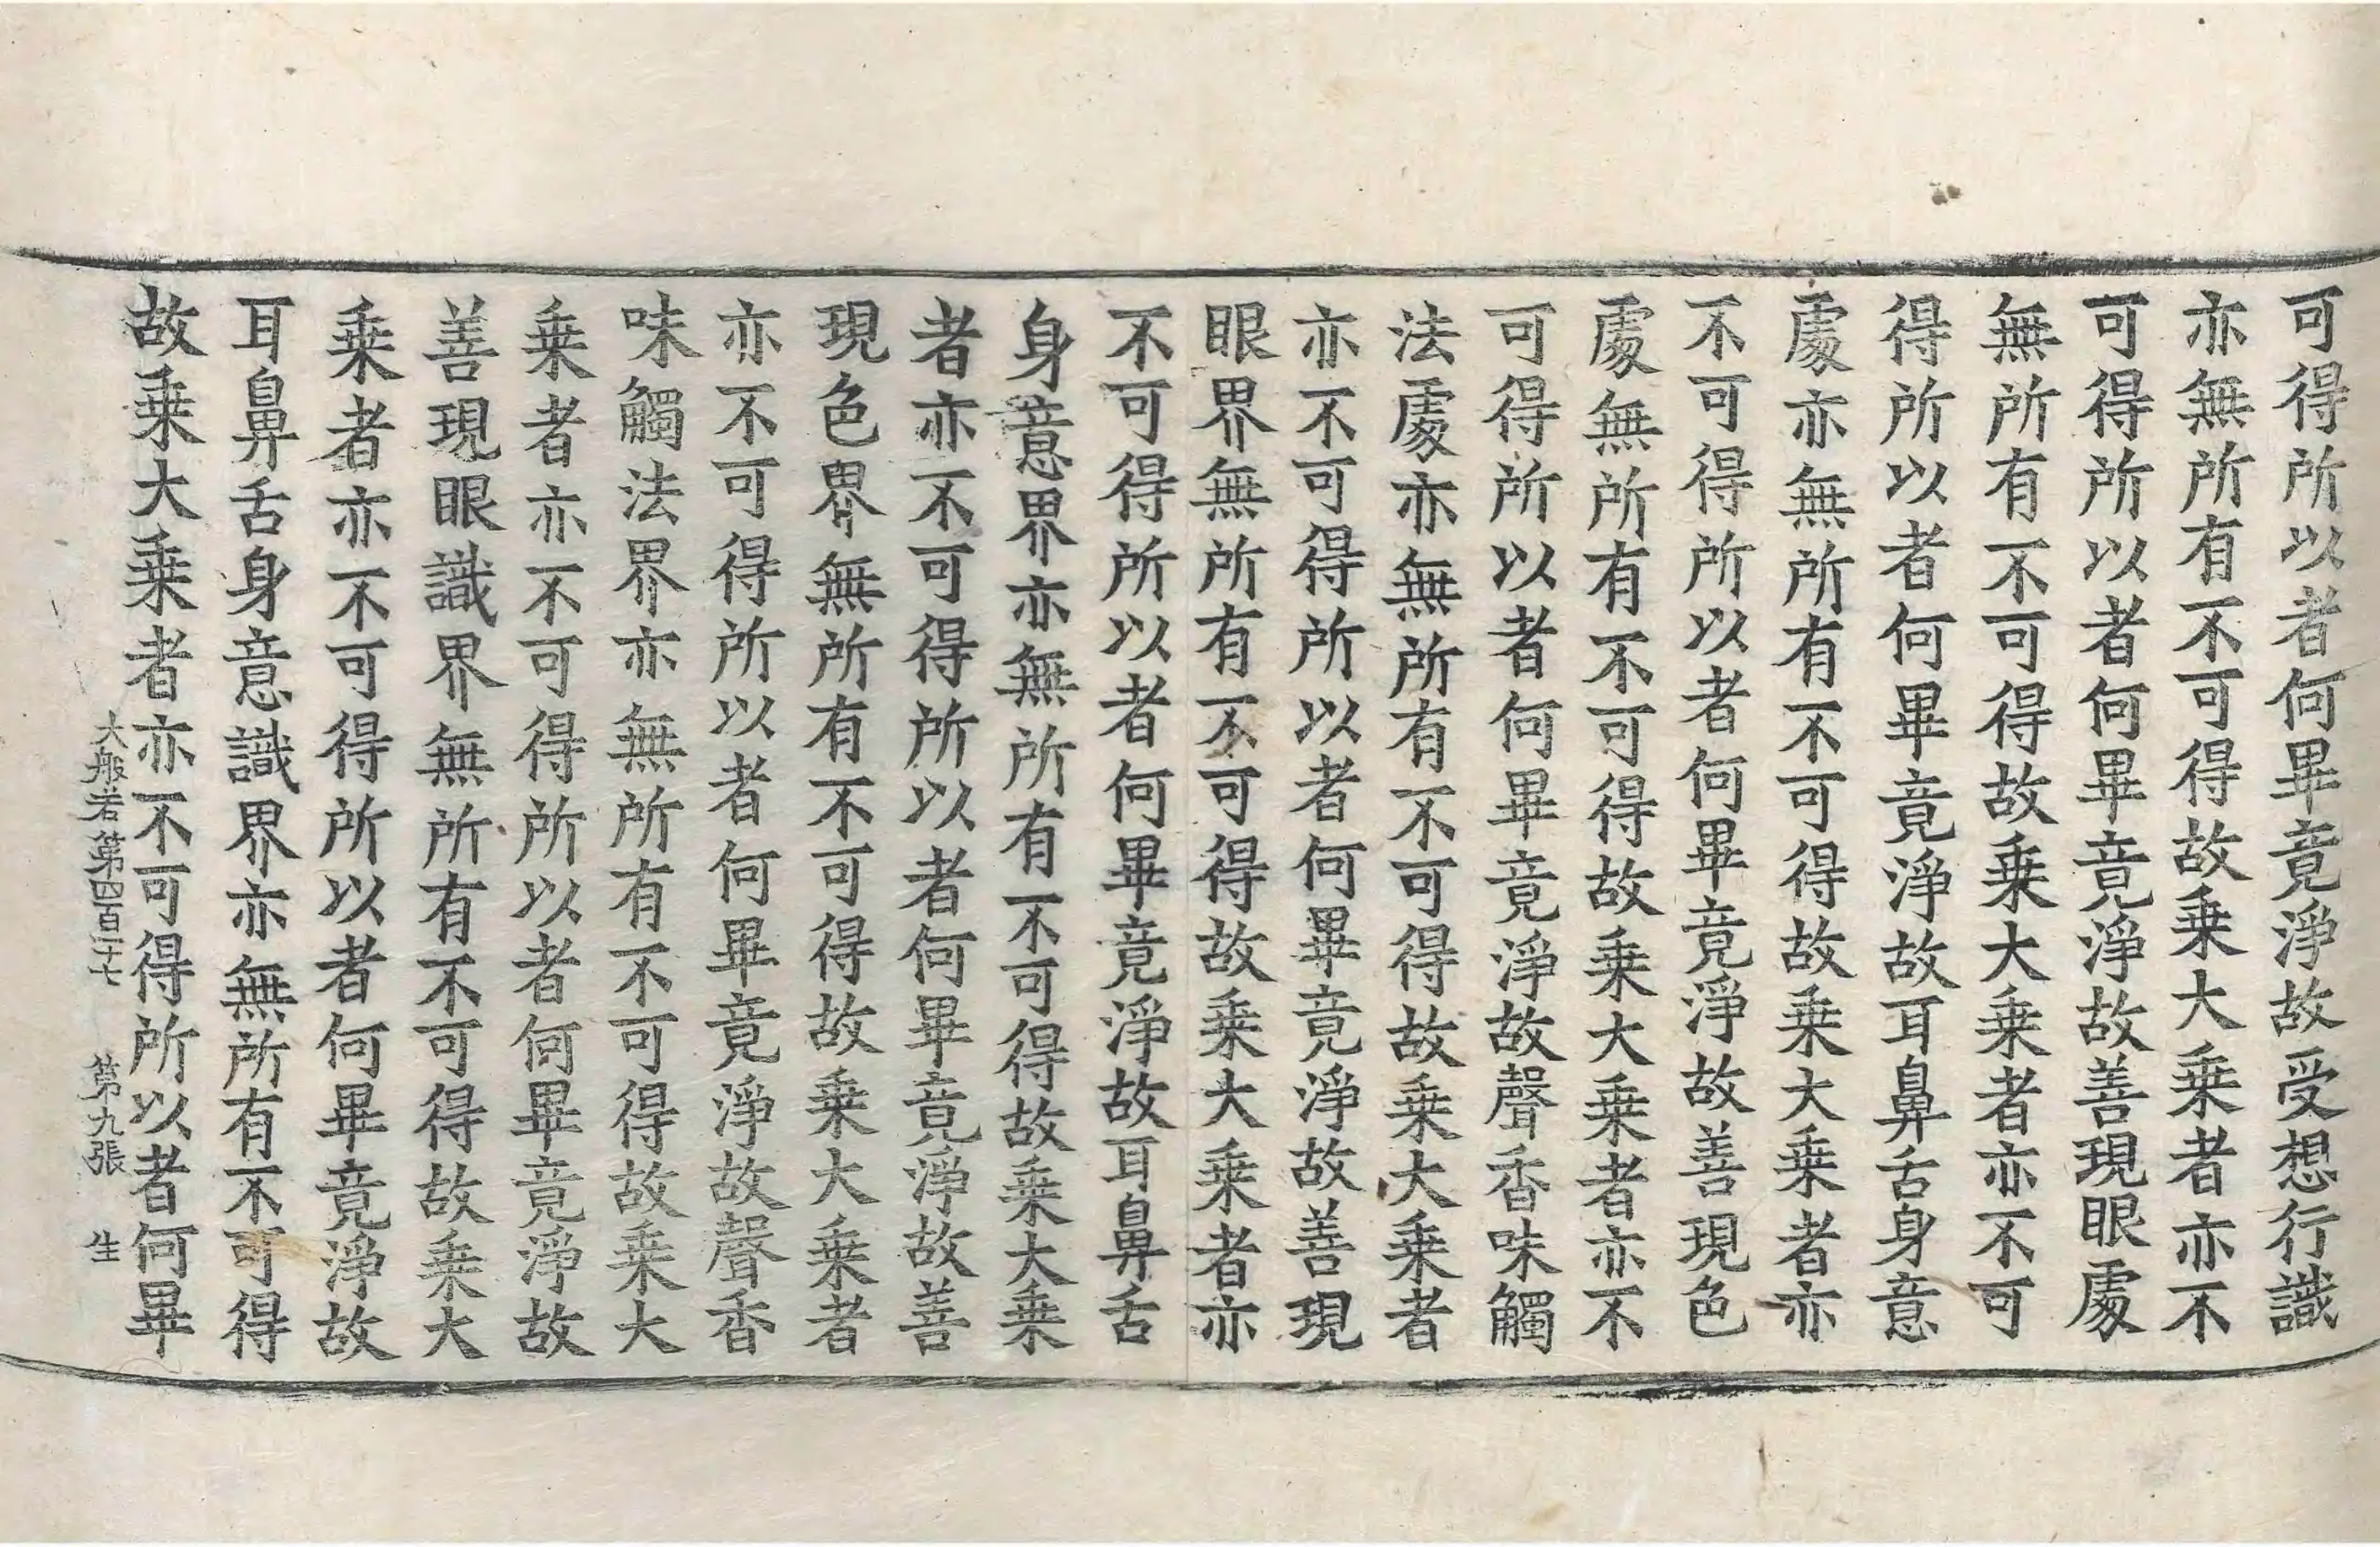 可得所以者何畢竟淨故受想行識
亦無所有不可得故乗大乗者亦不
可得所以者何畢竟淨故善現眼處
無所有不可得故乗大乗者亦不可
得所以者何畢竟淨故耳鼻舌身意
處亦無所有不可得故乗大乗者亦
不可得所以者何畢竟淨故善現色
處無所有不可得故乗大乗者亦不
可得所以者何畢竟淨故聲香味觸
法處亦無所有不可得故乗大乗者
亦不可得所以者何畢竟淨故善現
眼界無所有不可得故乗大乗者亦
不可得所以者何畢竟淨故耳鼻舌
身意界亦無所有不可得故乗大乗
者亦不可得所以者何畢竟淨故善
現色界無所有不可得故乗大乗者
亦不可得所以者何畢竟淨故聲香
味觸法界亦無所有不可得故乗大
乗者亦不可得所以者何畢竟淨故
善現眼識界無所有不可得故乗大
乗者亦不可得所以者何畢竟淨故
耳鼻舌身意識界亦無所有不可得
故乗大乗者亦不可得所以者何畢
大般若第四百一十七 第九張 生